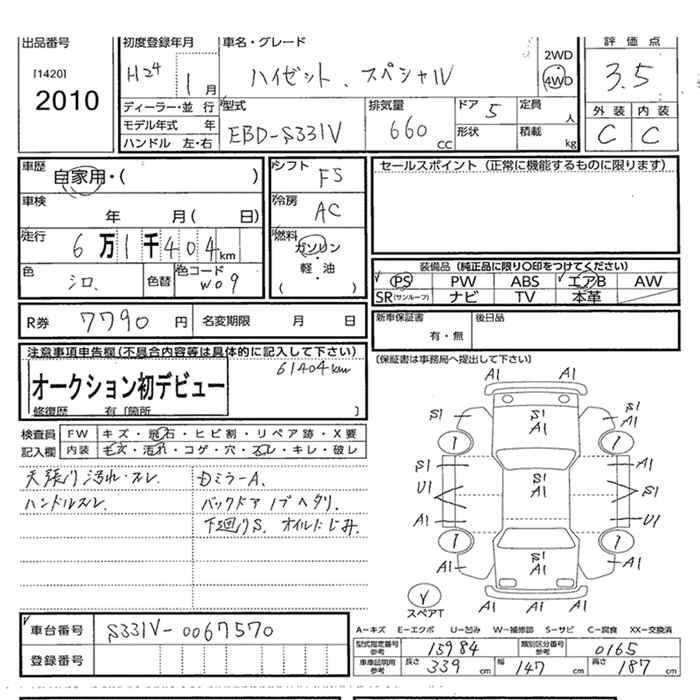 出品番号 初度登録年月 車名・グレード 評価点
[1420] H24 1月 ハイゼット、スペシャル 2WD 4WD 3.5
2010
ディーラー・並行 型式 排気量 ドア 5 定員 人 外装 内装
モデル年式 年 EBD-S331V 660 CC 形状 積載 kg C C
ハンドル 左・右
車歴 自家用・( ) シフト F5 セールスポイント (正常に機能するものに限ります)
車検 年 月( 日) 冷房 AC
走行 6万1千404km 燃料 ガソリン 軽・油 ( )
色 シロ. 色替 色コード W09
装備品 (純正品に限り○印をつけてください)
PS PW ABS エアB AW
SR(サンルーフ) ナビ TV 本革
R券 7790 円 名変期限 月 日
新車保証書 有・無 後日品
(保証書は事務局へ提出して下さい)
注意事項申告欄(不具合内容等は具体的に記入して下さい)
61404km
オークション初デビュー
修復歴 有 [箇所 ]
検査員 FW キズ・飛石・ヒビ割・リペア跡・X要
記入欄 内装 モケ・汚れ・コゲ・穴・スレ・キレ・破レ
天張り汚れ・スレ. 左ミラーA.
ハンドルスレ. バックドアノブヘタリ.
下廻りS. オイルにじみ.
A1 A1
S1 S1 S1
A1 A1
S1 A1
U1 S1 A1 S1
A1 U1
A1 S1 A1 A1
A1 A1 A1
スペアT
車台番号 S331V-0067570
登録番号
A-キズ E-エクボ U-凹み W-補修跡 S-サビ C-腐食 XX-交換済
型式指定番号 参考 15984 類別区分番号 参考 0165
車庫証明用 参考 長さ 339 cm 幅 147 cm 高さ 187 cm